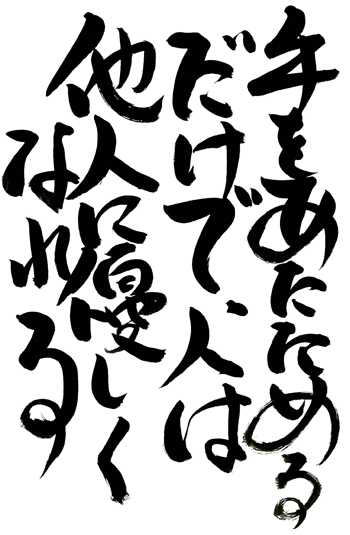 手をあたためる
だけで、人は
他人に優しく
なれる